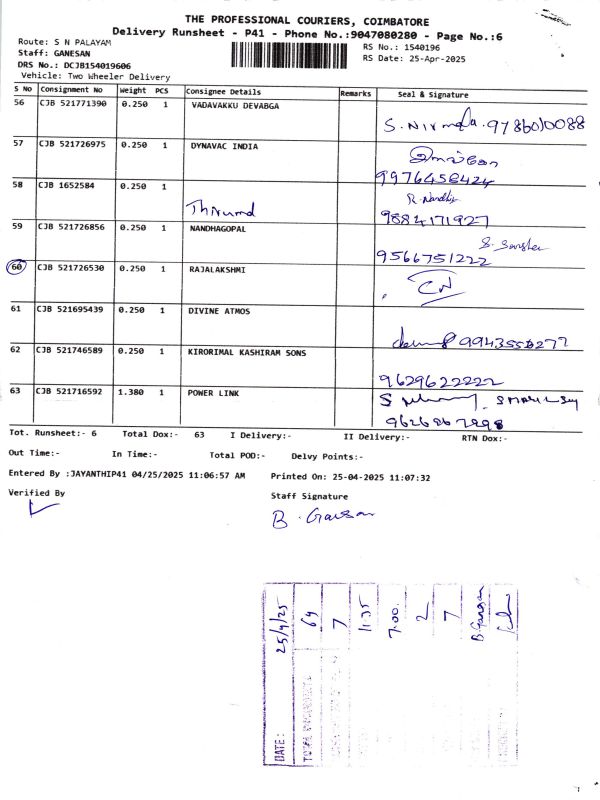 THE PROFESSIONAL COURIERS, COIMBATORE
Delivery Runsheet - P41 - Phone No.:9047080280 - Page No.:6
Route: S N PALAYAM
RS No.: 1540196
Staff: GANESAN
RS Date: 25-Apr-2025
DRS No.: DCJB154019606
Vehicle: Two Wheeler Delivery
S No Consignment No Weight PCS Consignee Details Remarks Seal & Signature
56 CJB 521771390 0.250 1 VADAVAKKU DEVABGA
S. Nirmala. 9786010088
57 CJB 521726975 0.250 1 DYNAVAC INDIA
9976458424
58 CJB 1652584 0.250 1
R. Nandhy
9884171927
59 CJB 521726856 0.250 1 NANDHAGOPAL
9566751222
60 CJB 521726530 0.250 1 RAJALAKSHMI
61 CJB 521695439 0.250 1 DIVINE ATMOS
62 CJB 521746589 0.250 1 KIRORIMAL KASHIRAM SONS
9629622222
63 CJB 521716592 1.380 1 POWER LINK
Tot. Runsheet:- 6 Total Dox:- 63 I Delivery:- II Delivery:- RTN Dox:-
Out Time:- In Time:- Total POD:- Delvy Points:-
Entered By :JAYANTHIP41 04/25/2025 11:06:57 AM Printed On: 25-04-2025 11:07:32
Verified By Staff Signature
B. Ganesan
DATE: 25/4/25
69
7
11.35
7.00.
2
7
B. Ganesan